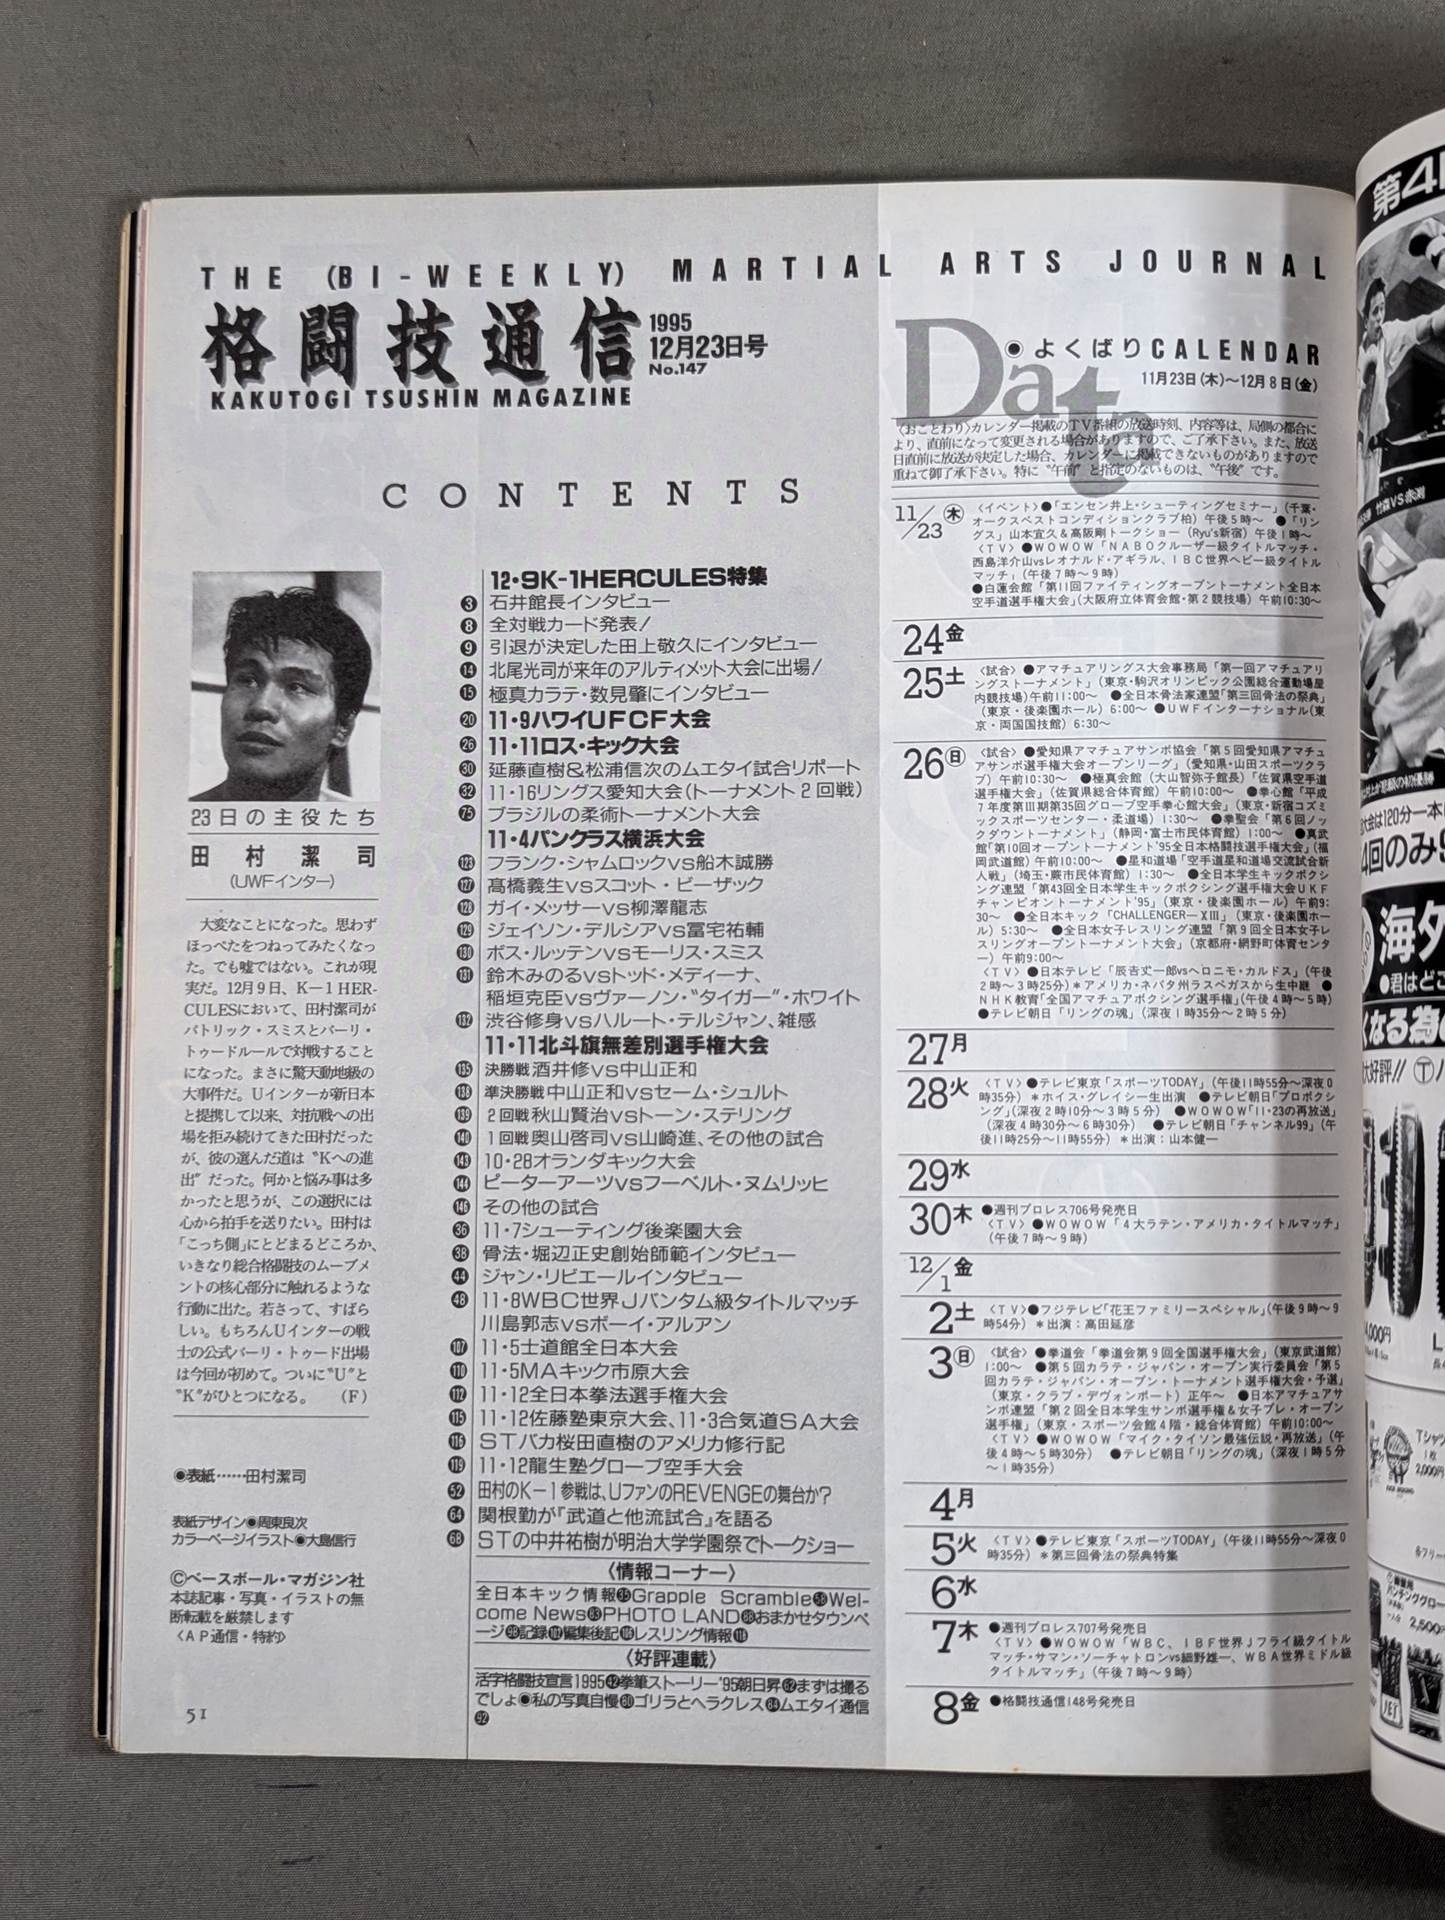 THE (BI-WEEKLY) MARTIAL ARTS JOURNAL
格闘技通信
1995
12月23日号
No.147
KAKUTOGI TSUSHIN MAGAZINE
CONTENTS
23日の主役たち
田村潔司
(UWFインター)
大変なことになった。思わず
ほっぺたをつねってみたくなっ
た。でも嘘ではない。これが現
実だ。12月9日、K-1 HER-
CULESにおいて、田村潔司が
パトリック・スミスとバーリ・
トゥードルールで対戦すること
になった。まさに驚天動地級の
大事件だ。Uインターが新日本
と提携して以来、対抗戦への出
場を拒み続けてきた田村だった
が、彼の選んだ道は〝Kへの進
出〟だった。何かと悩み事は多
かったと思うが、この選択には
心から拍手を送りたい。田村は
「こっち側」にとどまるどころか、
いきなり総合格闘技のムーブメ
ントの核心部分に触れるような
行動に出た。若さって、すばら
しい。もちろんUインターの戦
士の公式バーリ・トゥード出場
は今回が初めて。ついに〝U〟と
〝K〟がひとつになる。 (F)
◉表紙……田村潔司
表紙デザイン◉周東良次
カラーページイラスト◉大島信行
©ベースボール・マガジン社
本誌記事・写真・イラストの無
断転載を厳禁します
〈AP通信・特約〉
51
12・9K-1HERCULES特集
3 石井館長インタビュー
8 全対戦カード発表!
9 引退が決定した田上敬久にインタビュー
14 北尾光司が来年のアルティメット大会に出場!
15 極真カラテ・数見肇にインタビュー
20 11・9ハワイUFCF大会
26 11・11ロス・キック大会
30 延藤直樹&松浦信次のムエタイ試合リポート
32 11・16リングス愛知大会(トーナメント2回戦)
75 ブラジルの柔術トーナメント大会
11・4パンクラス横浜大会
123 フランク・シャムロックvs船木誠勝
127 髙橋義生vsスコット・ビーザック
128 ガイ・メッサーvs柳澤龍志
129 ジェイソン・デルシアvs冨宅祐輔
130 ボス・ルッテンvsモーリス・スミス
131 鈴木みのるvsトッド・メディーナ、
稲垣克臣vsヴァーノン・“タイガー”・ホワイト
132 渋谷修身vsハルート・テルジャン、雑感
11・11北斗旗無差別選手権大会
135 決勝戦酒井修vs中山正和
138 準決勝戦中山正和vsセーム・シュルト
139 2回戦秋山賢治vsトーン・ステリング
140 1回戦奥山啓司vs山崎進、その他の試合
143 10・28オランダキック大会
144 ピーターアーツvsフーベルト・ヌムリッヒ
146 その他の試合
36 11・7シューティング後楽園大会
38 骨法・堀辺正史創始師範インタビュー
44 ジャン・リビエールインタビュー
48 11・8WBC世界Jバンタム級タイトルマッチ
川島郭志vsボーイ・アルアン
107 11・5士道館全日本大会
110 11・5MAキック市原大会
112 11・12全日本拳法選手権大会
115 11・12佐藤塾東京大会、11・3合気道SA大会
116 STバカ桜田直樹のアメリカ修行記
119 11・12龍生塾グローブ空手大会
52 田村のK-1参戦は、UファンのREVENGEの舞台か?
64 関根勤が『武道と他流試合』を語る
68 STの中井祐樹が明治大学学園祭でトークショー
〈情報コーナー〉
全日本キック情報35Grapple Scramble58Wel-
come News83PHOTO LAND88おまかせタウンペ
ージ98記録107編集後記106レスリング情報118
〈好評連載〉
活字格闘技宣言1995 42拳筆ストーリー'95朝日昇62まずは撮る
でしょ◉私の写真自慢80ゴリラとヘラクレス84ムエタイ通信
92
Date
◉よくばりCALENDAR
11月23日(木)〜12月8日(金)
〈おことわり〉カレンダー掲載のTV番組の放送時刻、内容等は、局側の都合に
より、直前になって変更される場合がありますので、ご了承下さい。また、放送
日直前に放送が決定した場合、カレンダーに掲載できないものがありますので
重ねて御了承下さい。特に〝午前〟と指定のないものは、〝午後〟です。
11/23㊍
〈イベント〉●「エンセン井上・シューティングセミナー」(千葉・
オークスベストコンディションクラブ柏)午後5時〜 ●「リン
グス」山本宜久&高阪剛トークショー(Ryu's新宿)午後1時〜
〈TV〉●WOWOW「NABOクルーザー級タイトルマッチ・
西島洋介山vsレオナルド・アギラル、IBC世界ヘビー級タイトル
マッチ」(午後7時〜9時)
●白蓮会館「第11回ファイティングオープントーナメント全日本
空手道選手権大会」(大阪府立体育会館・第2競技場)午前10:30〜
24金
25土
〈試合〉●アマチュアリングス大会事務局「第一回アマチュアリ
ングストーナメント」(東京・駒沢オリンピック公園総合運動場屋
内競技場)午前11:00〜 ●全日本骨法家連盟「第三回骨法の祭典」
(東京・後楽園ホール)6:00〜●UWFインターナショナル(東
京・両国国技館)6:30〜
26㊐
〈試合〉●愛知県アマチュアサンボ協会「第5回愛知県アマチュ
アサンボ選手権大会オープンリーグ」(愛知県・山田スポーツクラ
ブ)午前10:30〜 ●極真会館(大山智弥子館長)「佐賀県空手道
選手権大会」(佐賀県総合体育館)午前10:00〜 ●拳心館「平成
7年度第III期第35回グローブ空手拳心館大会」(東京・新宿コズミ
ックスポーツセンター・柔道場)1:30〜 ●拳聖会「第6回ノッ
クダウントーナメント」(静岡・富士市民体育館)1:00〜 ●真武
館「第10回オープントーナメント'95全日本格闘技選手権大会」(福
岡武道館)午前10:00〜 ●星和道場「空手道星和道場交流試合新
人戦」(埼玉・蕨市民体育館)1:30〜 ●全日本学生キックボクシ
ング連盟「第43回全日本学生キックボクシング選手権大会UKF
チャンピオントーナメント'95」(東京・後楽園ホール)午前9:
30〜 ●全日本キック「CHALLENGER—XIII」(東京・後楽園ホー
ル)5:30〜 ●全日本女子レスリング連盟「第9回全日本女子レ
スリングオープントーナメント大会」(京都府・網野町体育センタ
ー)午前9:00〜
〈TV〉●日本テレビ「辰𠮷丈一郎vsヘロニモ・カルドス」(午後
2時〜3時25分)*アメリカ・ネバタ州ラスベガスから生中継 ●
NHK教育「全国アマチュアボクシング選手権」(午後4時〜5時)
●テレビ朝日「リングの魂」(深夜1時35分〜2時5分)
27月
28火
〈TV〉●テレビ東京「スポーツTODAY」(午後11時55分〜深夜0
時35分)*ホイス・グレイシー生出演 ●テレビ朝日「プロボクシ
ング」(深夜2時10分〜3時5分) ●WOWOW「11・23の再放送」
(深夜4時30分〜6時30分) ●テレビ朝日「チャンネル99」(午
後11時25分〜11時55分)*出演:山本健一
29水
30木
●週刊プロレス706号発売日
〈TV〉●WOWOW「4大ラテン・アメリカ・タイトルマッチ」
(午後7時〜9時)
12/1金
2土
〈TV〉●フジテレビ「花王ファミリースペシャル」(午後9時〜9
時54分)*出演:高田延彦
3㊐
〈試合〉●拳道会「拳道会第9回全国選手権大会」(東京武道館)
1:00〜 ●第5回カラテ・ジャパン・オープン実行委員会「第5
回カラテ・ジャパン・オープン・トーナメント選手権大会・予選」
(東京・クラブ・デヴォンポート)正午〜 ●日本アマチュアサ
ンボ連盟「第2回全日本学生サンボ選手権&女子プレ・オープン
選手権」(東京・スポーツ会館4階・総合体育館)午前10:00〜
〈TV〉●WOWOW「マイク・タイソン最強伝説・再放送」(午
後4時〜5時30分) ●テレビ朝日「リングの魂」(深夜1時5分
〜1時35分)
4月
5火
〈TV〉●テレビ東京「スポーツTODAY」(午後11時55分〜深夜0
時35分)*第三回骨法の祭典特集
6水
7木
●週刊プロレス707号発売日
〈TV〉●WOWOW「WBC、IBF世界Jフライ級タイトル
マッチ・サマン・ソーチャトロンvs細野雄一、WBA世界ミドル級
タイトルマッチ」(午後7時〜9時)
8金
●格闘技通信148号発売日
第4
竹森VS赤渕
大会は120分一本
4回のみ
海外
●君はど
くなる為の
大好評!!
4,000円
Tシャツ
2,000円
パンチンググロー
2,500